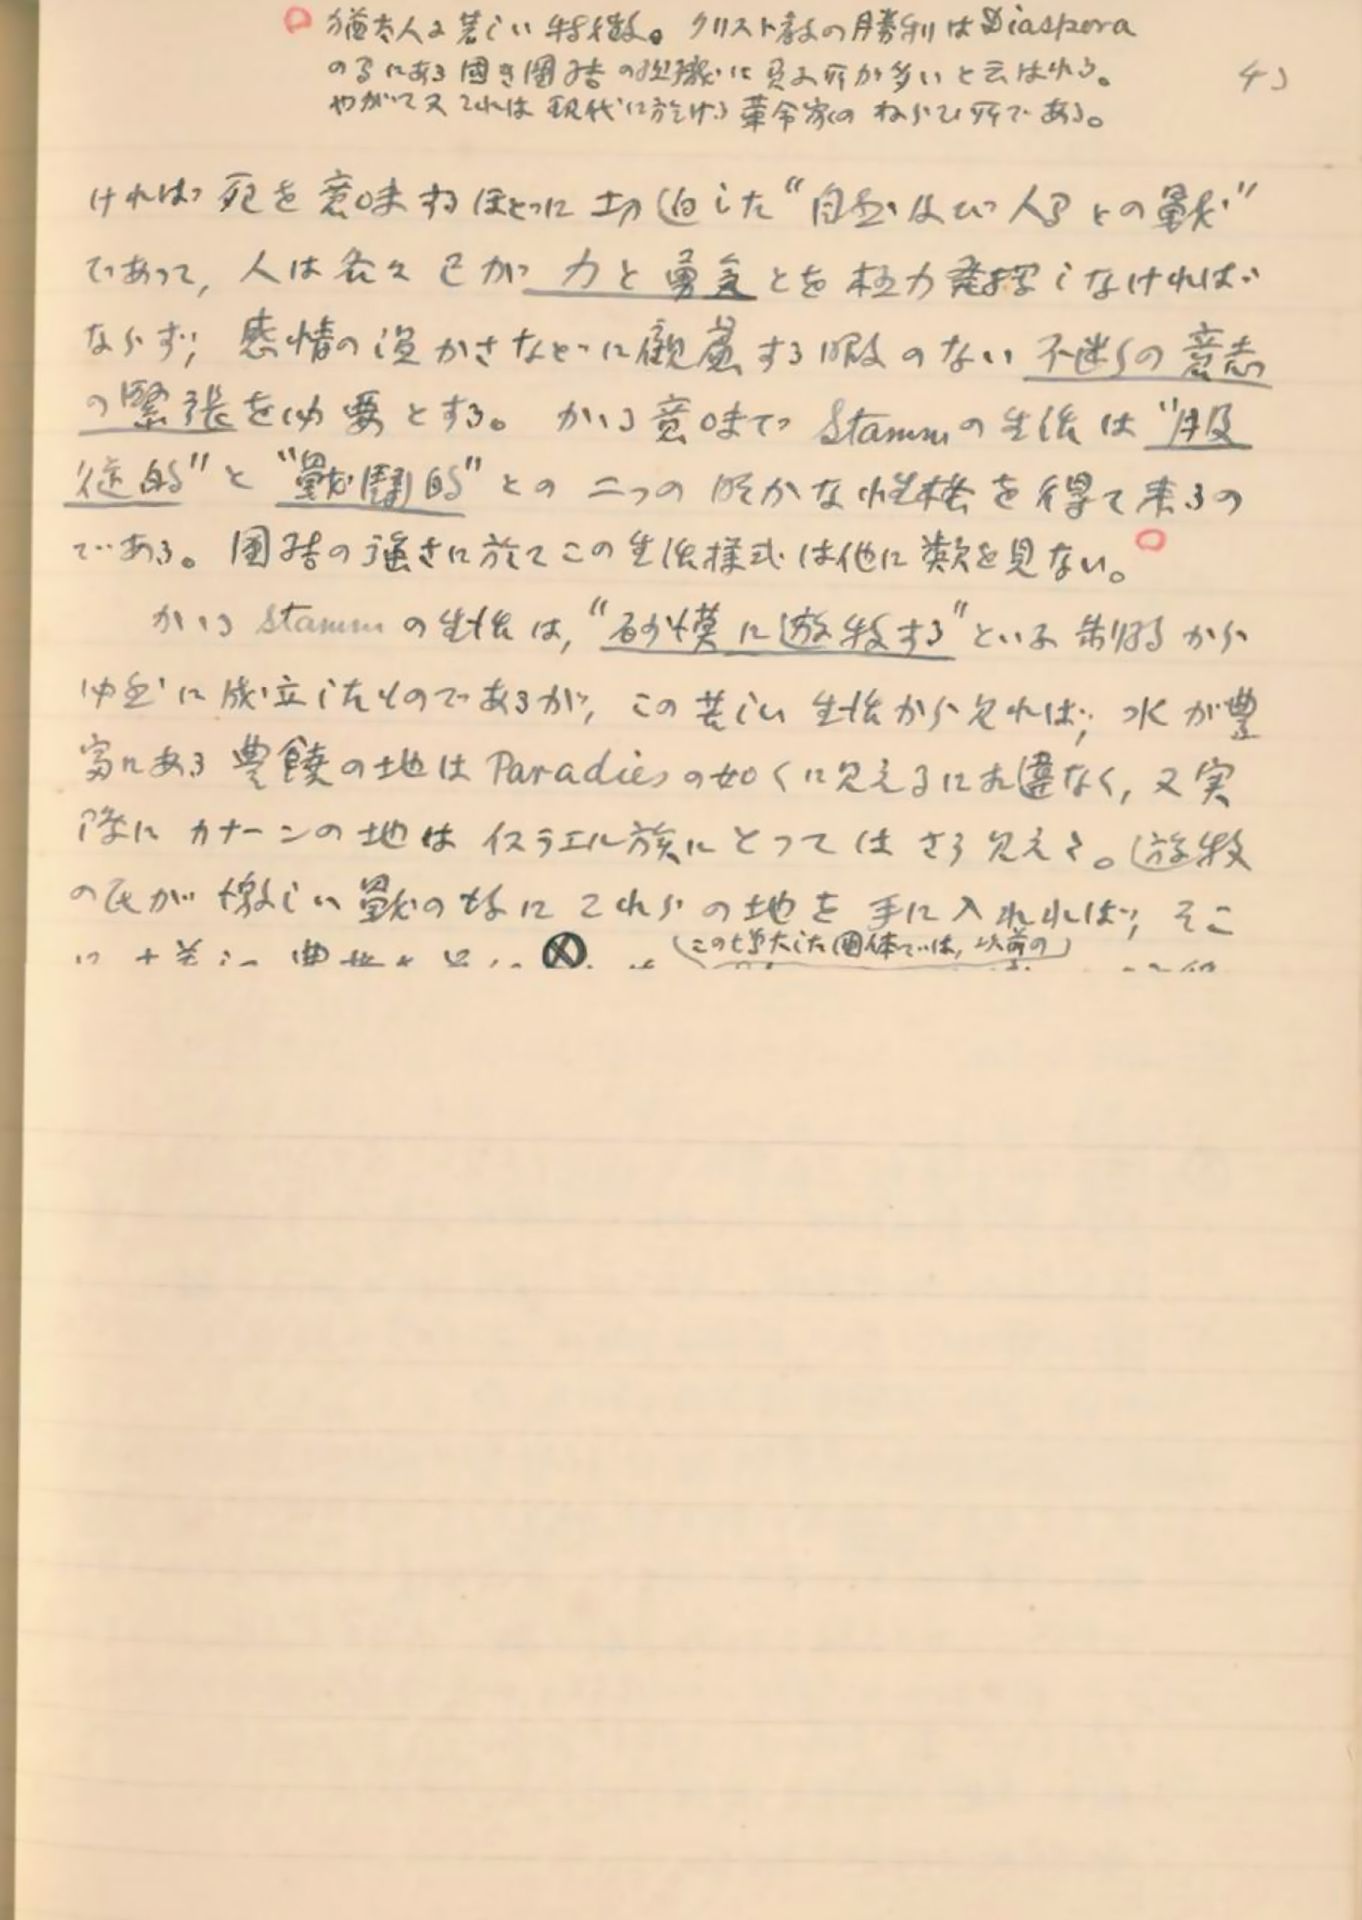 猶太人の著しい特徴。クリスト教の勝利は Diaspora
の間にある固き團結の地盤に負ふ所が多いと云はれる。
やがて又これは現代に於ける革命家のねらひ所である。
43
ければ死を意味するほどに切迫した“自然及び人間との戰”
であって、人は各々己が力と勇気とを極力発揮しなければ
ならず、感情の温かさなどに顧慮する暇のない不断の意志
の緊張を必要とする。かゝる意味で Stammの生活は“服
從的”と“戰鬪的”との二つの明かな性格を得て来るの
である。團結の強さに於てこの生活様式は他に類を見ない。
かゝる Stammの生活は、“砂漠に遊牧する”といふ制限から
必然に成立したものであるが、この苦しい生活から見れば、水が豊
富にある豊饒の地は Paradiesの如くに見えるに相違なく、又実
際にカナーンの地はイスラエル族にとってはさう見えた。遊牧
の民が激しい戰の後にこれらの地を手に入れれば、そこ
(この増大した團体では、以前の)